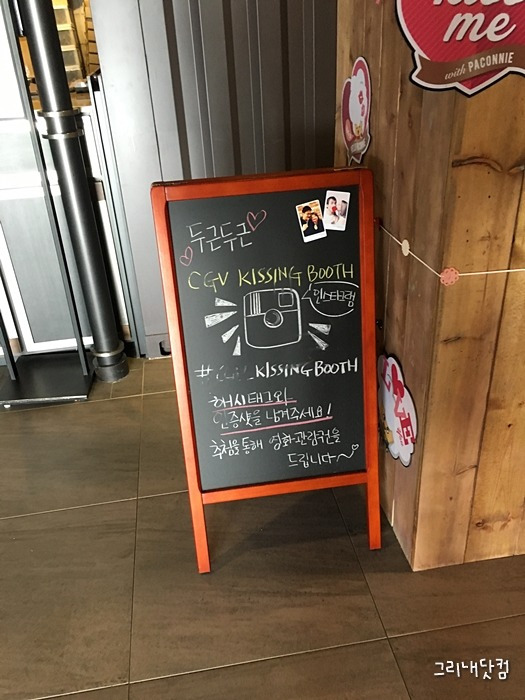 me
with PACONNIE
두근두근
CGV KISSING BOOTH
인스타그램
KISSING BOOTH
해시태그와
인증샷을 남겨주세요!
추첨을통해 영화관람권을
드립니다~
그리내닷컴